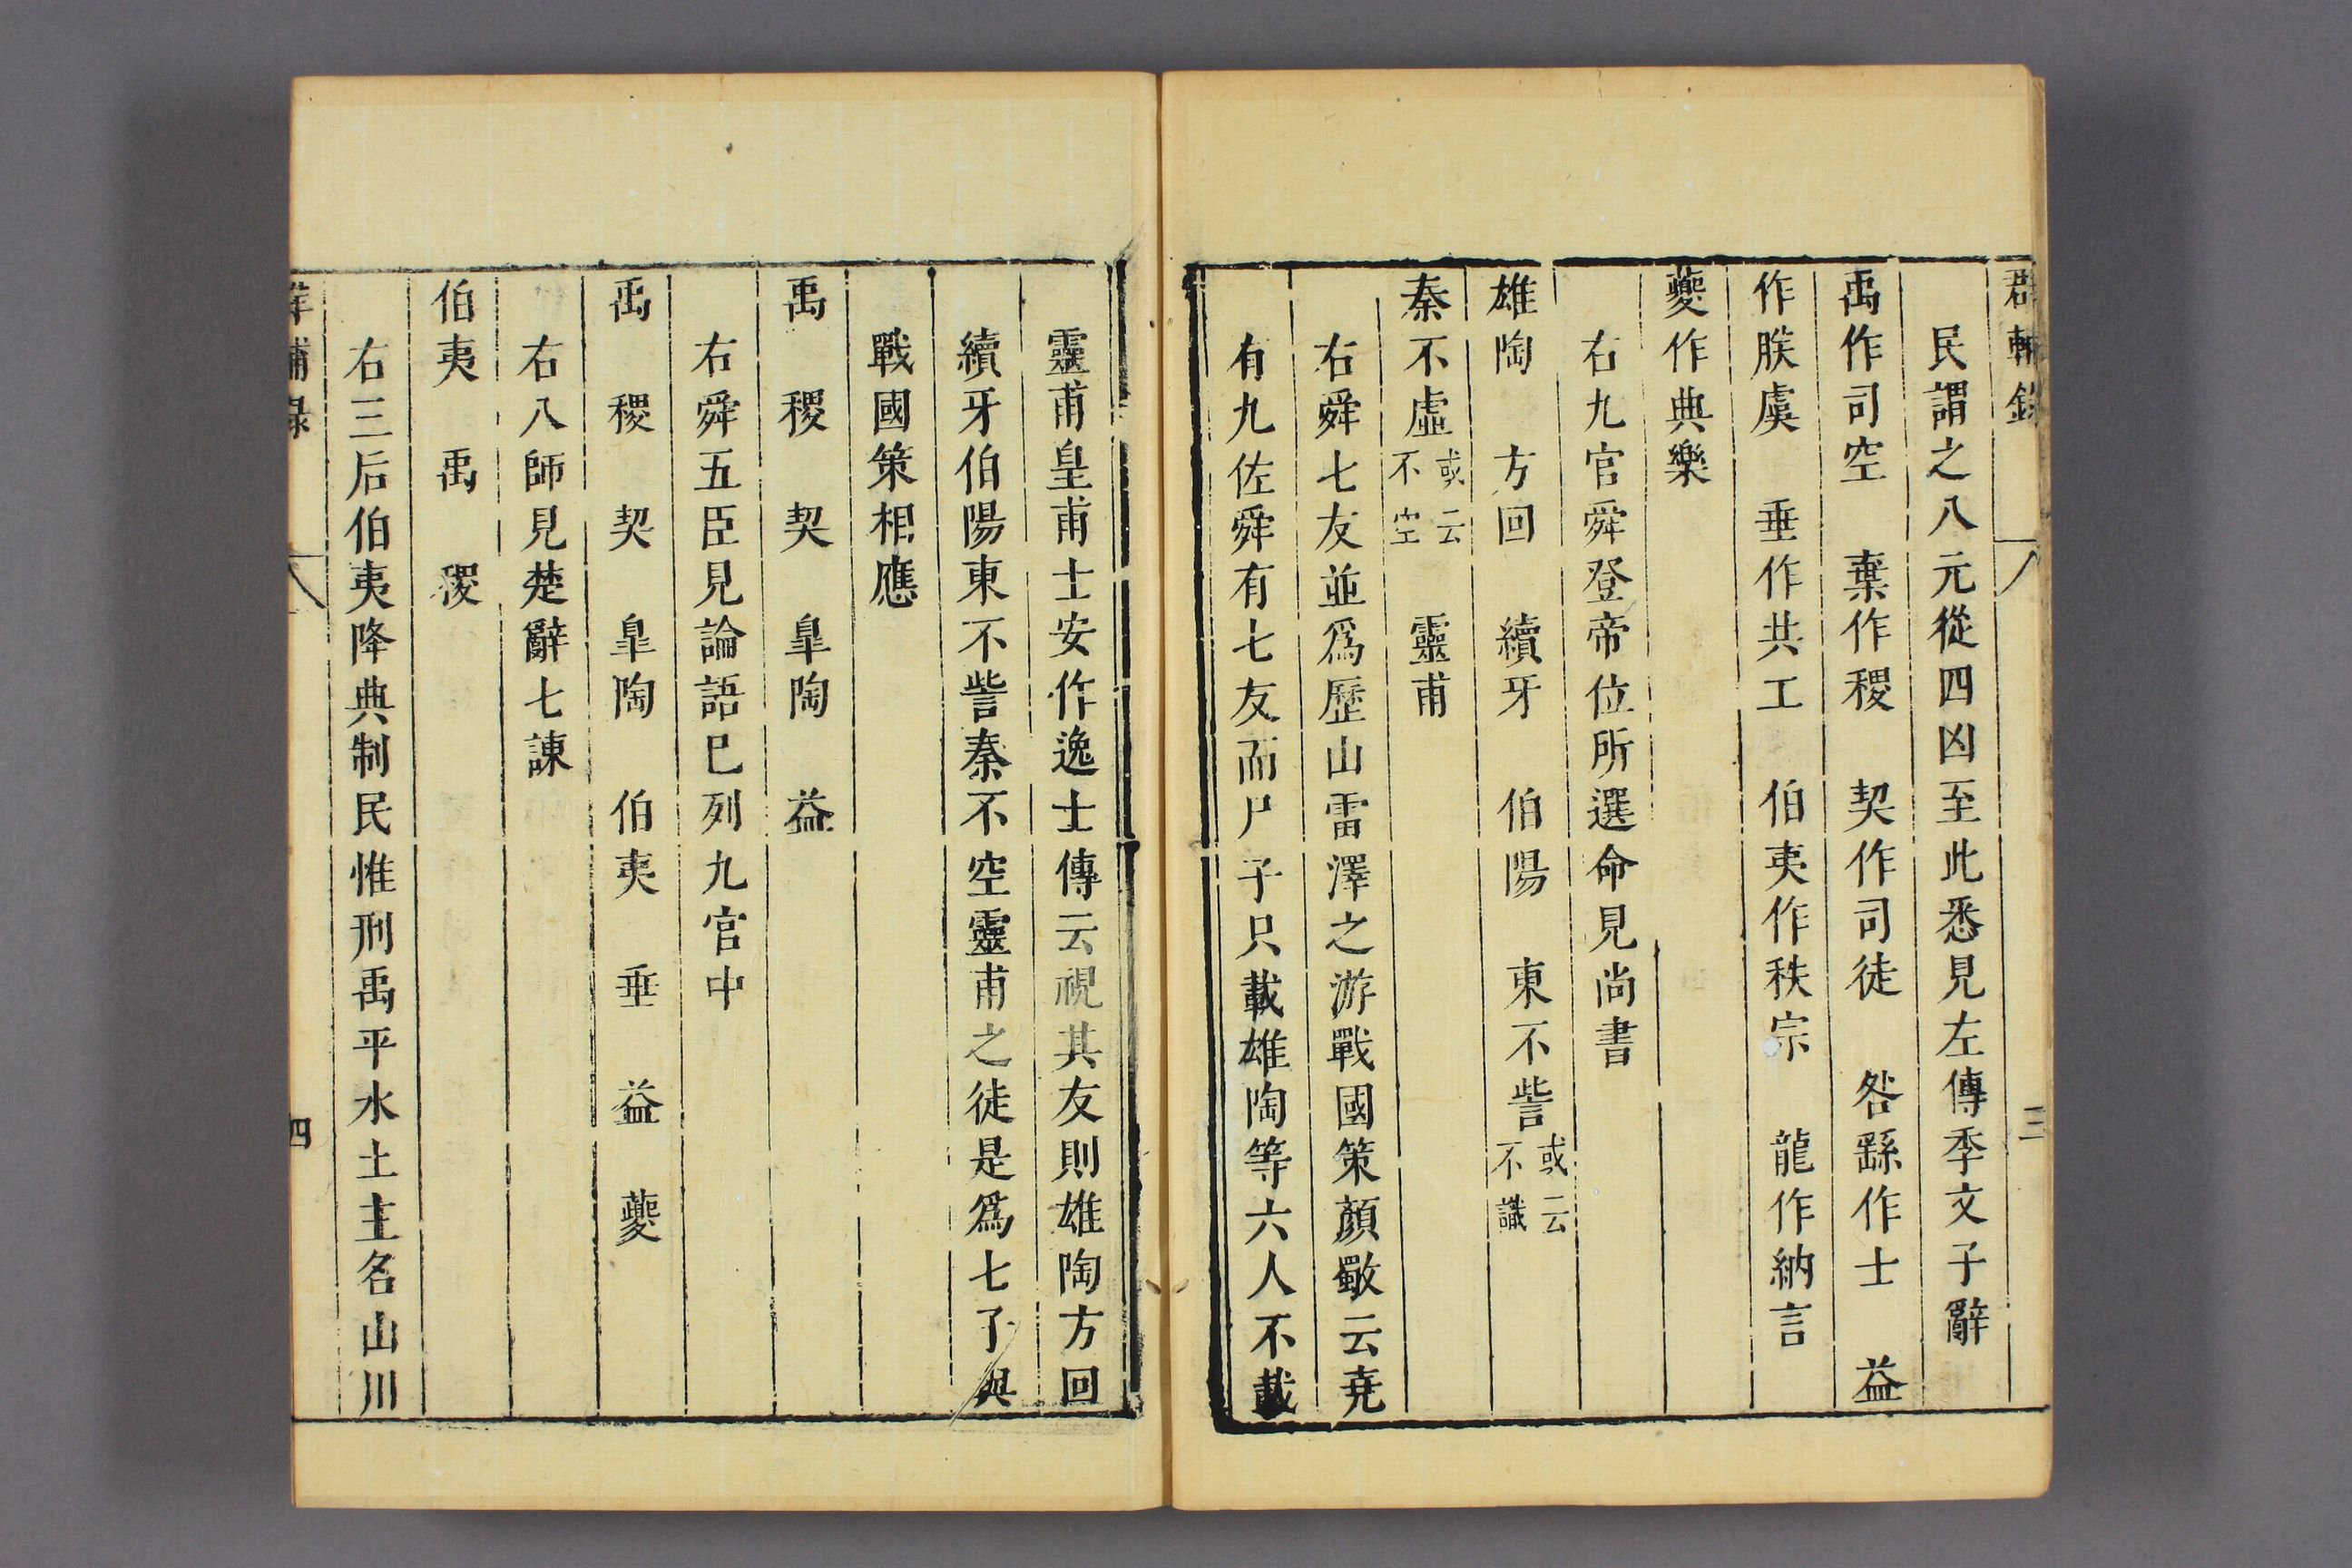 群輔錄
三
民謂之八元從四凶至此悉見左傳季文子辭
禹作司空　棄作稷　契作司徒　咎繇作士　益
作朕虞　垂作共工　伯夷作秩宗　龍作納言
夔作典樂
右九官舜登帝位所選命見尚書
雄陶　方回　續牙　伯陽　東不訾或云不識
秦不虛或云不空　靈甫
右舜七友並爲歷山雷澤之游戰國策顏歜云堯
有九佐舜有七友而尸子只載雄陶等六人不載
靈甫皇甫士安作逸士傳云視其友則雄陶方回
續牙伯陽東不訾秦不空靈甫之徒是爲七子與
戰國策相應
禹　稷　契　皐陶　益
右舜五臣見論語已列九官中
禹　稷　契　皐陶　伯夷　垂　益　夔
右八師見楚辭七諫
伯夷　禹　稷
右三后伯夷降典制民惟刑禹平水土主名山川
群輔録
四